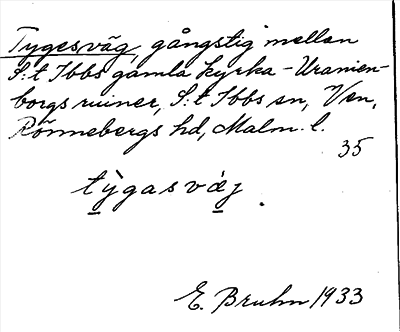 Tygesväg, gångstig mellan
S:t Ibbs gamla kyrka - Uranien-
borgs ruiner, S:t Ibbs sn, Ven,
Rönnebergs hd, Malm. l.
35
tỳgasvä́j.
E. Bruhn 1933